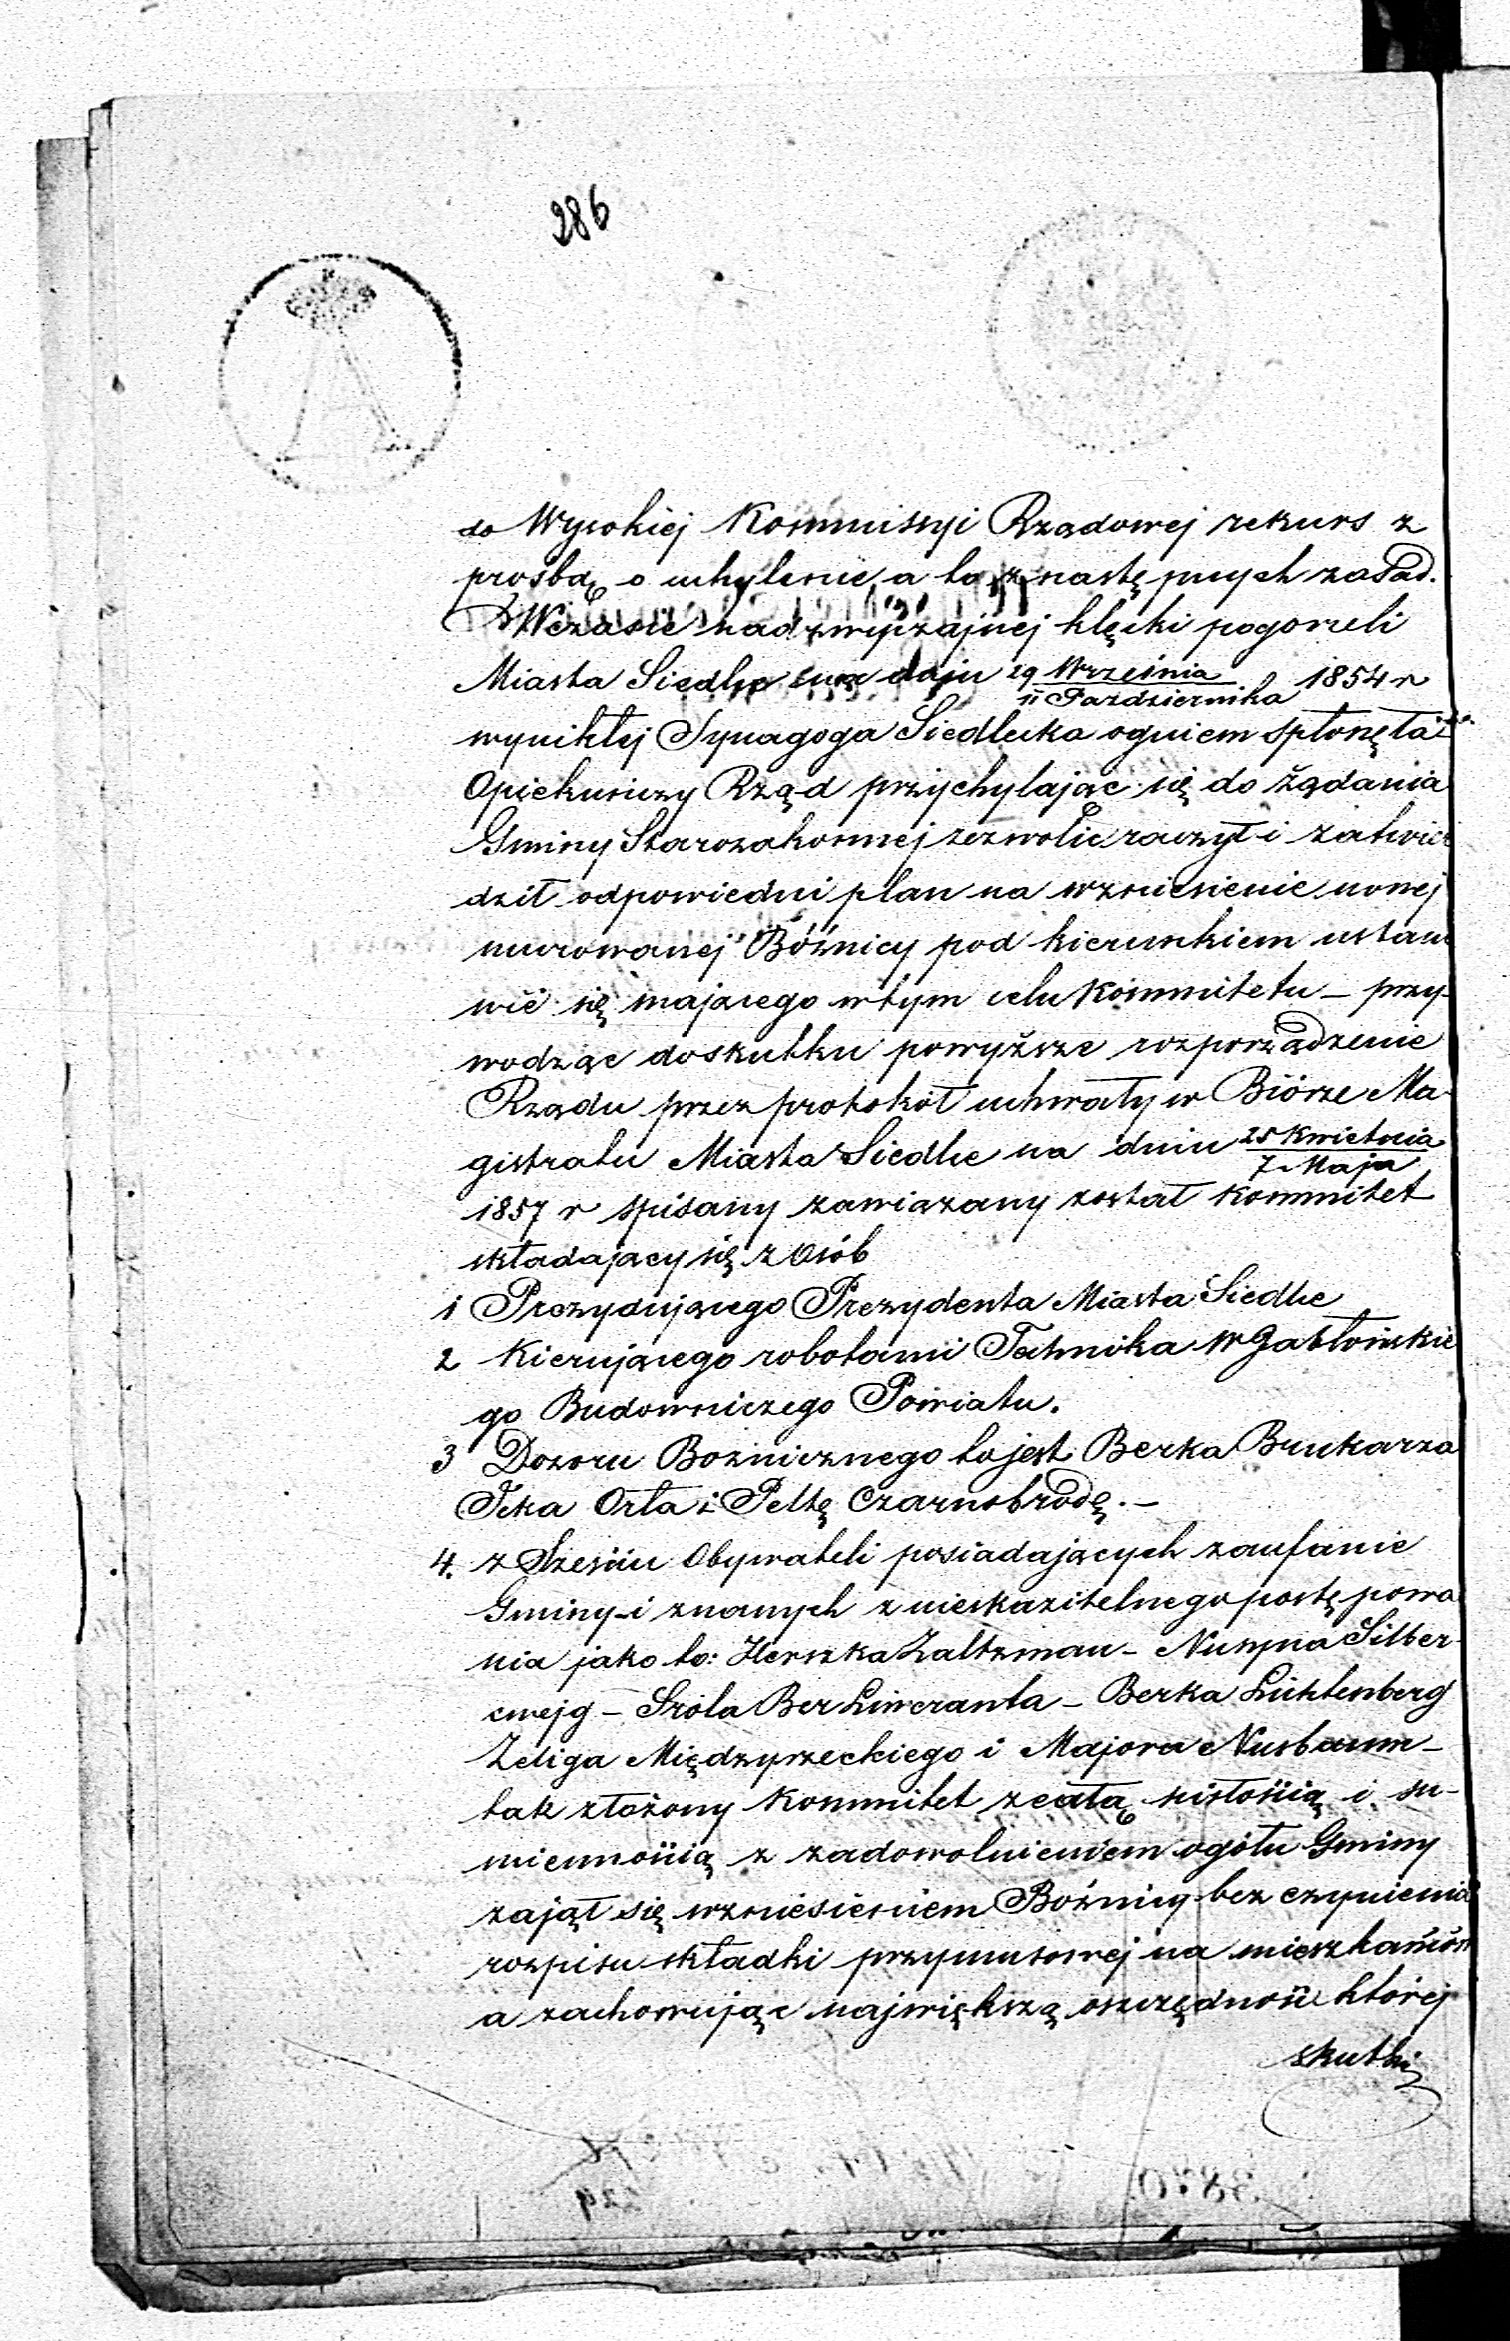 286
do Wysokiej Kommissyi Rządowej rekurs z
prośbą o uchylenie a to z następnych zasad.
Wczasie nadzwyczajnej klęski pogorzeli
Miasta Siedlce w dniu 29 Września / 11 Października 1854 r
wynikłej Synagoga Siedlecka ogniem spłonęła
Opiekuńczy Rząd przychylając się do żądania
Gminy Starozakonnej zezwolić raczył i zatwier
dził odpowiedni plan na wzniesienie nowej
murowanej Bóżnicy pod kierunkiem ustano
wić się mającego wtym celu Kommitetu – przy-
wodząc doskutku powyższe rozporządzenie
Rządu przez protokół uchwały w Biórze Ma-
gistratu Miasta Siedlce na dniu 25 Kwietnia / 7 Maja
1857 r spisany zawiązany został Kommitet
składający się z Osób
1 Prezydującego Prezydenta Miasta Siedlce
2 Kierującego robotami Technika W Jabłońskie
go Budowniczego Powiatu.
3 Dozoru Boźnicznego to jest Berka Brukarza
Icka Orła i Peltę Czarnobrodę. –
4. z Sześciu Obywateli posiadających zaufanie
Gminy i znanych z nieskazitelnego postępowa
nia jako to: Herszka Zaltzman – Nusyna Silber-
cwejg – Srola Ber Liweranta – Berka Lichtenberg
Zeliga Międzyrzeckiego i Majora Nusbaum –
tak złożony Kommitet z całą ścisłością i su-
miennością z zadowolnieniem ogółu Gminy
zajął się wzniesieniem Boźnicy bez czynienia
rozpisu składki przymusowej na mieszkańców
a zachowując największą oszczędność której
skutki